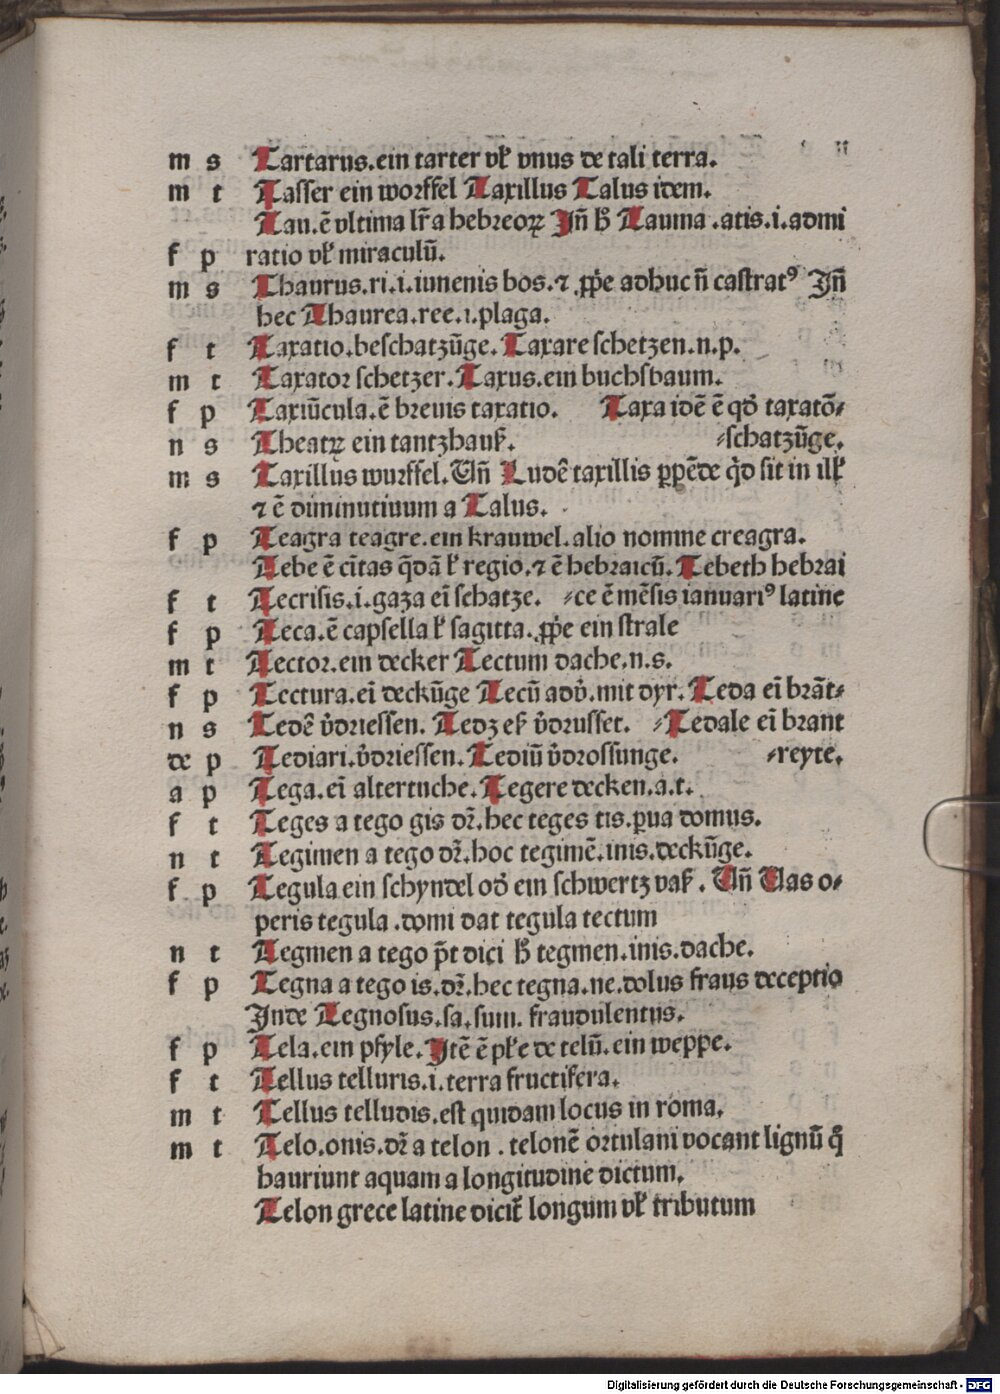 m s Tartarus.ein tarter vł vnus de tali terra.
m t Tasser ein worffel Taxillus Talus idem.
Tau.ē vltima lr̄a hebreoꝝ Jñ ħ Tauma .atis.i.admi
f p ratio vł miraculū.
m s Thaurus.ri.i.iuuenis bos.⁊ ꝓpͥe adhuc ñ castratꝰ Jñ
hec Thaurea.ree.i.plaga.
f t Taxatio.beschatzūge.Taxare schetzen.n.p.
m t Taxator schetzer.Taxus.ein buchsbaum.
f p Taxiūcula.ē breuis taxatio. Taxa idē ē qd̛ taxatō⸗
n s Theatꝝ ein tantzhauß. ⸗schatzūge.
m s Taxillus wurffel.Vñ Ludē taxillis ꝑpēde qͥd sit in ilł
⁊ ē diminutiuum a Talus.
f p Teagra teagre.ein krauwel.alio nomine creagra.
Tebe ē cītas q̄dā ł regio.⁊ ē hebraicū.Tebeth hebrai
f t Tecrisis.i.gaza eī schatze. ⸗ce ē mēsis ianuariꝰ latine
f p Teca.ē capsella ł sagitta.ꝓpͥe ein strale
m t Tector.ein decker Tectum dache.n.s.
f p Tectura.eī deckūge Tecū adv̛.mit dyr.Teda eī brāt⸗
n s Tedē v̛driessen. Tedꝫ eß v̛drusset. ⸗Tedale eī brant
de p Tediari.v̛driessen.Tediū v̛drossunge. ⸗reyte.
a p Tega.eī altertuche.Tegere decken.a.t.
f t Teges a tego gis dr̄.hec teges tis.ꝑua domus.
n t Tegimen a tego dr̄.hoc tegimē.inis.deckūge.
f p Tegula ein schyndel od̛ ein schwertz vaß . Vñ Vas o⸗
peris tegula .domi dat tegula tectum
n t Tegmen a tego pt̄ dici ħ tegmen.inis.dache.
f p Tegna a tego is.dr̄.hec tegna.ne.dolus fraus deceptio
Jnde Tegnosus.sa.sum. fraudulentus.
f p Tela.ein pfyle.Jtē ē płe de telū.ein weppe.
f t Tellus telluris.i.terra fructifera.
m t Tellus telludis.est quidam locus in roma.
m t Telo.onis.dr̄ a telon . telonē ortulani vocant lignū qͦ
hauriunt aquam a longitudine dictum.
Telon grece latine dicit̛ longum vł tributum
Digitalisierung gefördert durch die Deutsche Forschungsgemeinschaft - DFG